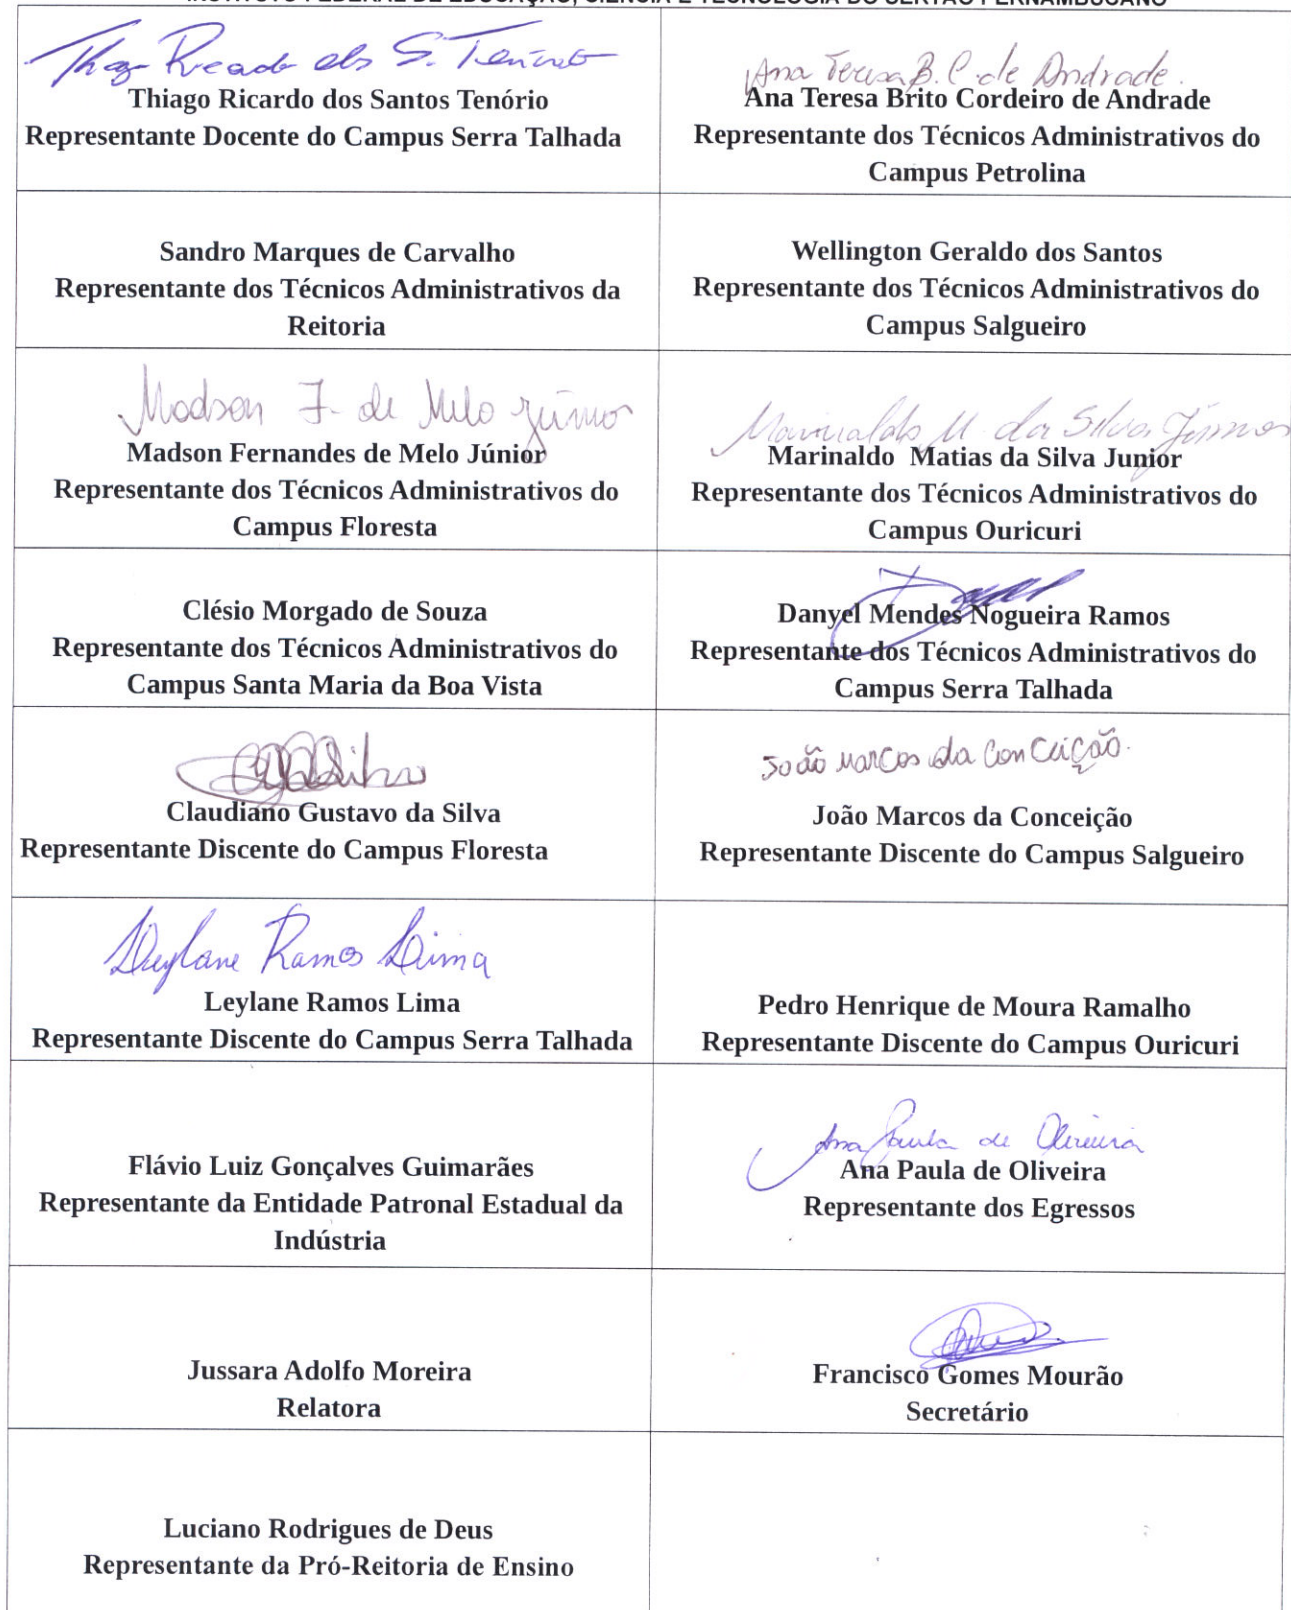 INSTITUTO FEDERAL DE EDUCAÇÃO, CIÊNCIA E TECNOLOGIA DO SERTÃO PERNAMBUCANO
Thiago Ricardo dos S. Tenório
Thiago Ricardo dos Santos Tenório
Representante Docente do Campus Serra Talhada
Ana Teresa B. C. de Andrade.
Ana Teresa Brito Cordeiro de Andrade
Representante dos Técnicos Administrativos do
Campus Petrolina
Sandro Marques de Carvalho
Representante dos Técnicos Administrativos da
Reitoria
Wellington Geraldo dos Santos
Representante dos Técnicos Administrativos do
Campus Salgueiro
Madson F. de Melo Júnior
Madson Fernandes de Melo Júnior
Representante dos Técnicos Administrativos do
Campus Floresta
Marinaldo M. da Silva Júnior
Marinaldo Matias da Silva Junior
Representante dos Técnicos Administrativos do
Campus Ouricuri
Clésio Morgado de Souza
Representante dos Técnicos Administrativos do
Campus Santa Maria da Boa Vista
Danyel Mendes Nogueira Ramos
Representante dos Técnicos Administrativos do
Campus Serra Talhada
Claudiano Gustavo da Silva
Representante Discente do Campus Floresta
João Marcos da Conceição.
João Marcos da Conceição
Representante Discente do Campus Salgueiro
Leylane Ramos Lima
Leylane Ramos Lima
Representante Discente do Campus Serra Talhada
Pedro Henrique de Moura Ramalho
Representante Discente do Campus Ouricuri
Flávio Luiz Gonçalves Guimarães
Representante da Entidade Patronal Estadual da
Indústria
Ana Paula de Oliveira
Ana Paula de Oliveira
Representante dos Egressos
Jussara Adolfo Moreira
Relatora
Francisco Gomes Mourão
Secretário
Luciano Rodrigues de Deus
Representante da Pró-Reitoria de Ensino